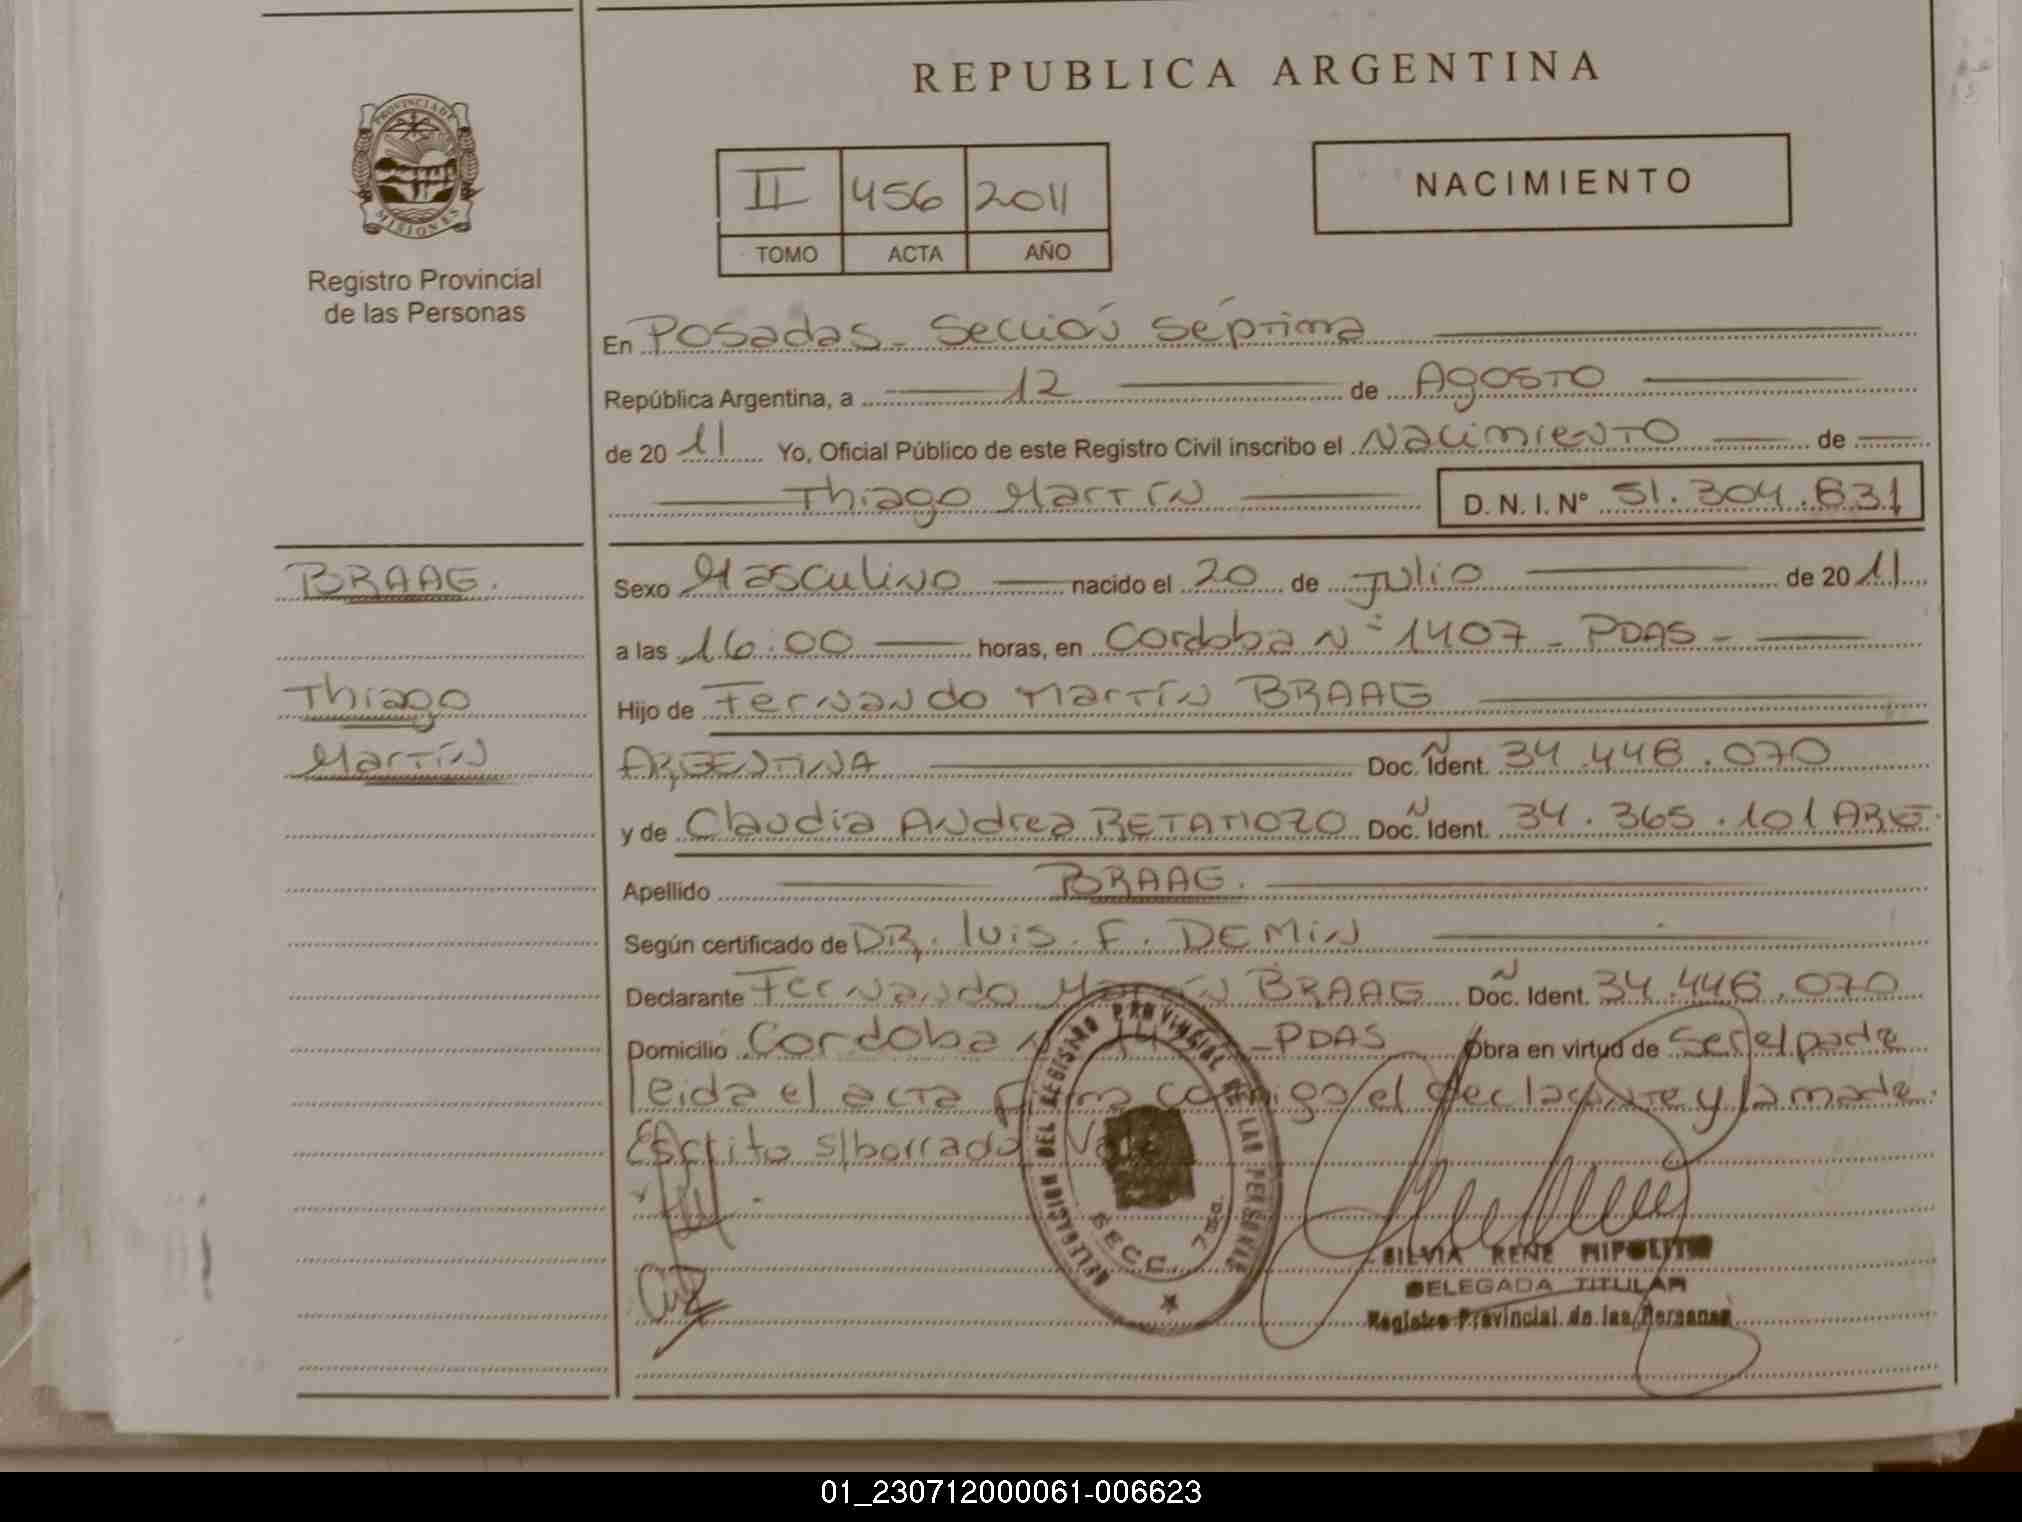 REPUBLICA ARGENTINA
PROVINCIA DE MISIONES
Registro Provincial
de las Personas
II 456 2011
TOMO ACTA AÑO
NACIMIENTO
En Posadas - Sección Séptima
República Argentina, a 12 de Agosto
de 2011 Yo, Oficial Público de este Registro Civil inscribo el Nacimiento de
Thiago Martín D. N. I. Nº 51.304.831
BRAAG.
Thiago
Martín
Sexo Masculino nacido el 20 de Julio de 2011
a las 16:00 horas, en Cordoba Nº 1407 - PDAS -
Hijo de Fernando Martín BRAAG
ARGENTINA Doc. Ident. 34.448.070
y de Claudia Andrea RETAMOZO Doc. Ident. 34.365.101 ARG.
Apellido BRAAG.
Según certificado de DR. Luis. F. DEMIN
Declarante Fernando Martín BRAAG Doc. Ident. 34.448.070
Domicilio Cordoba - PDAS Obra en virtud de ser el padre
leida el acta firma conmigo el declarante y la madre.
Escrito s/borrado
DELEGACION DEL REGISTRO PROVINCIAL DE LAS PERSONAS
SECC. 7ma.
SILVIA RENE HIPOLITO
DELEGADA TITULAR
Registro Provincial de las Personas
01_230712000061-006623